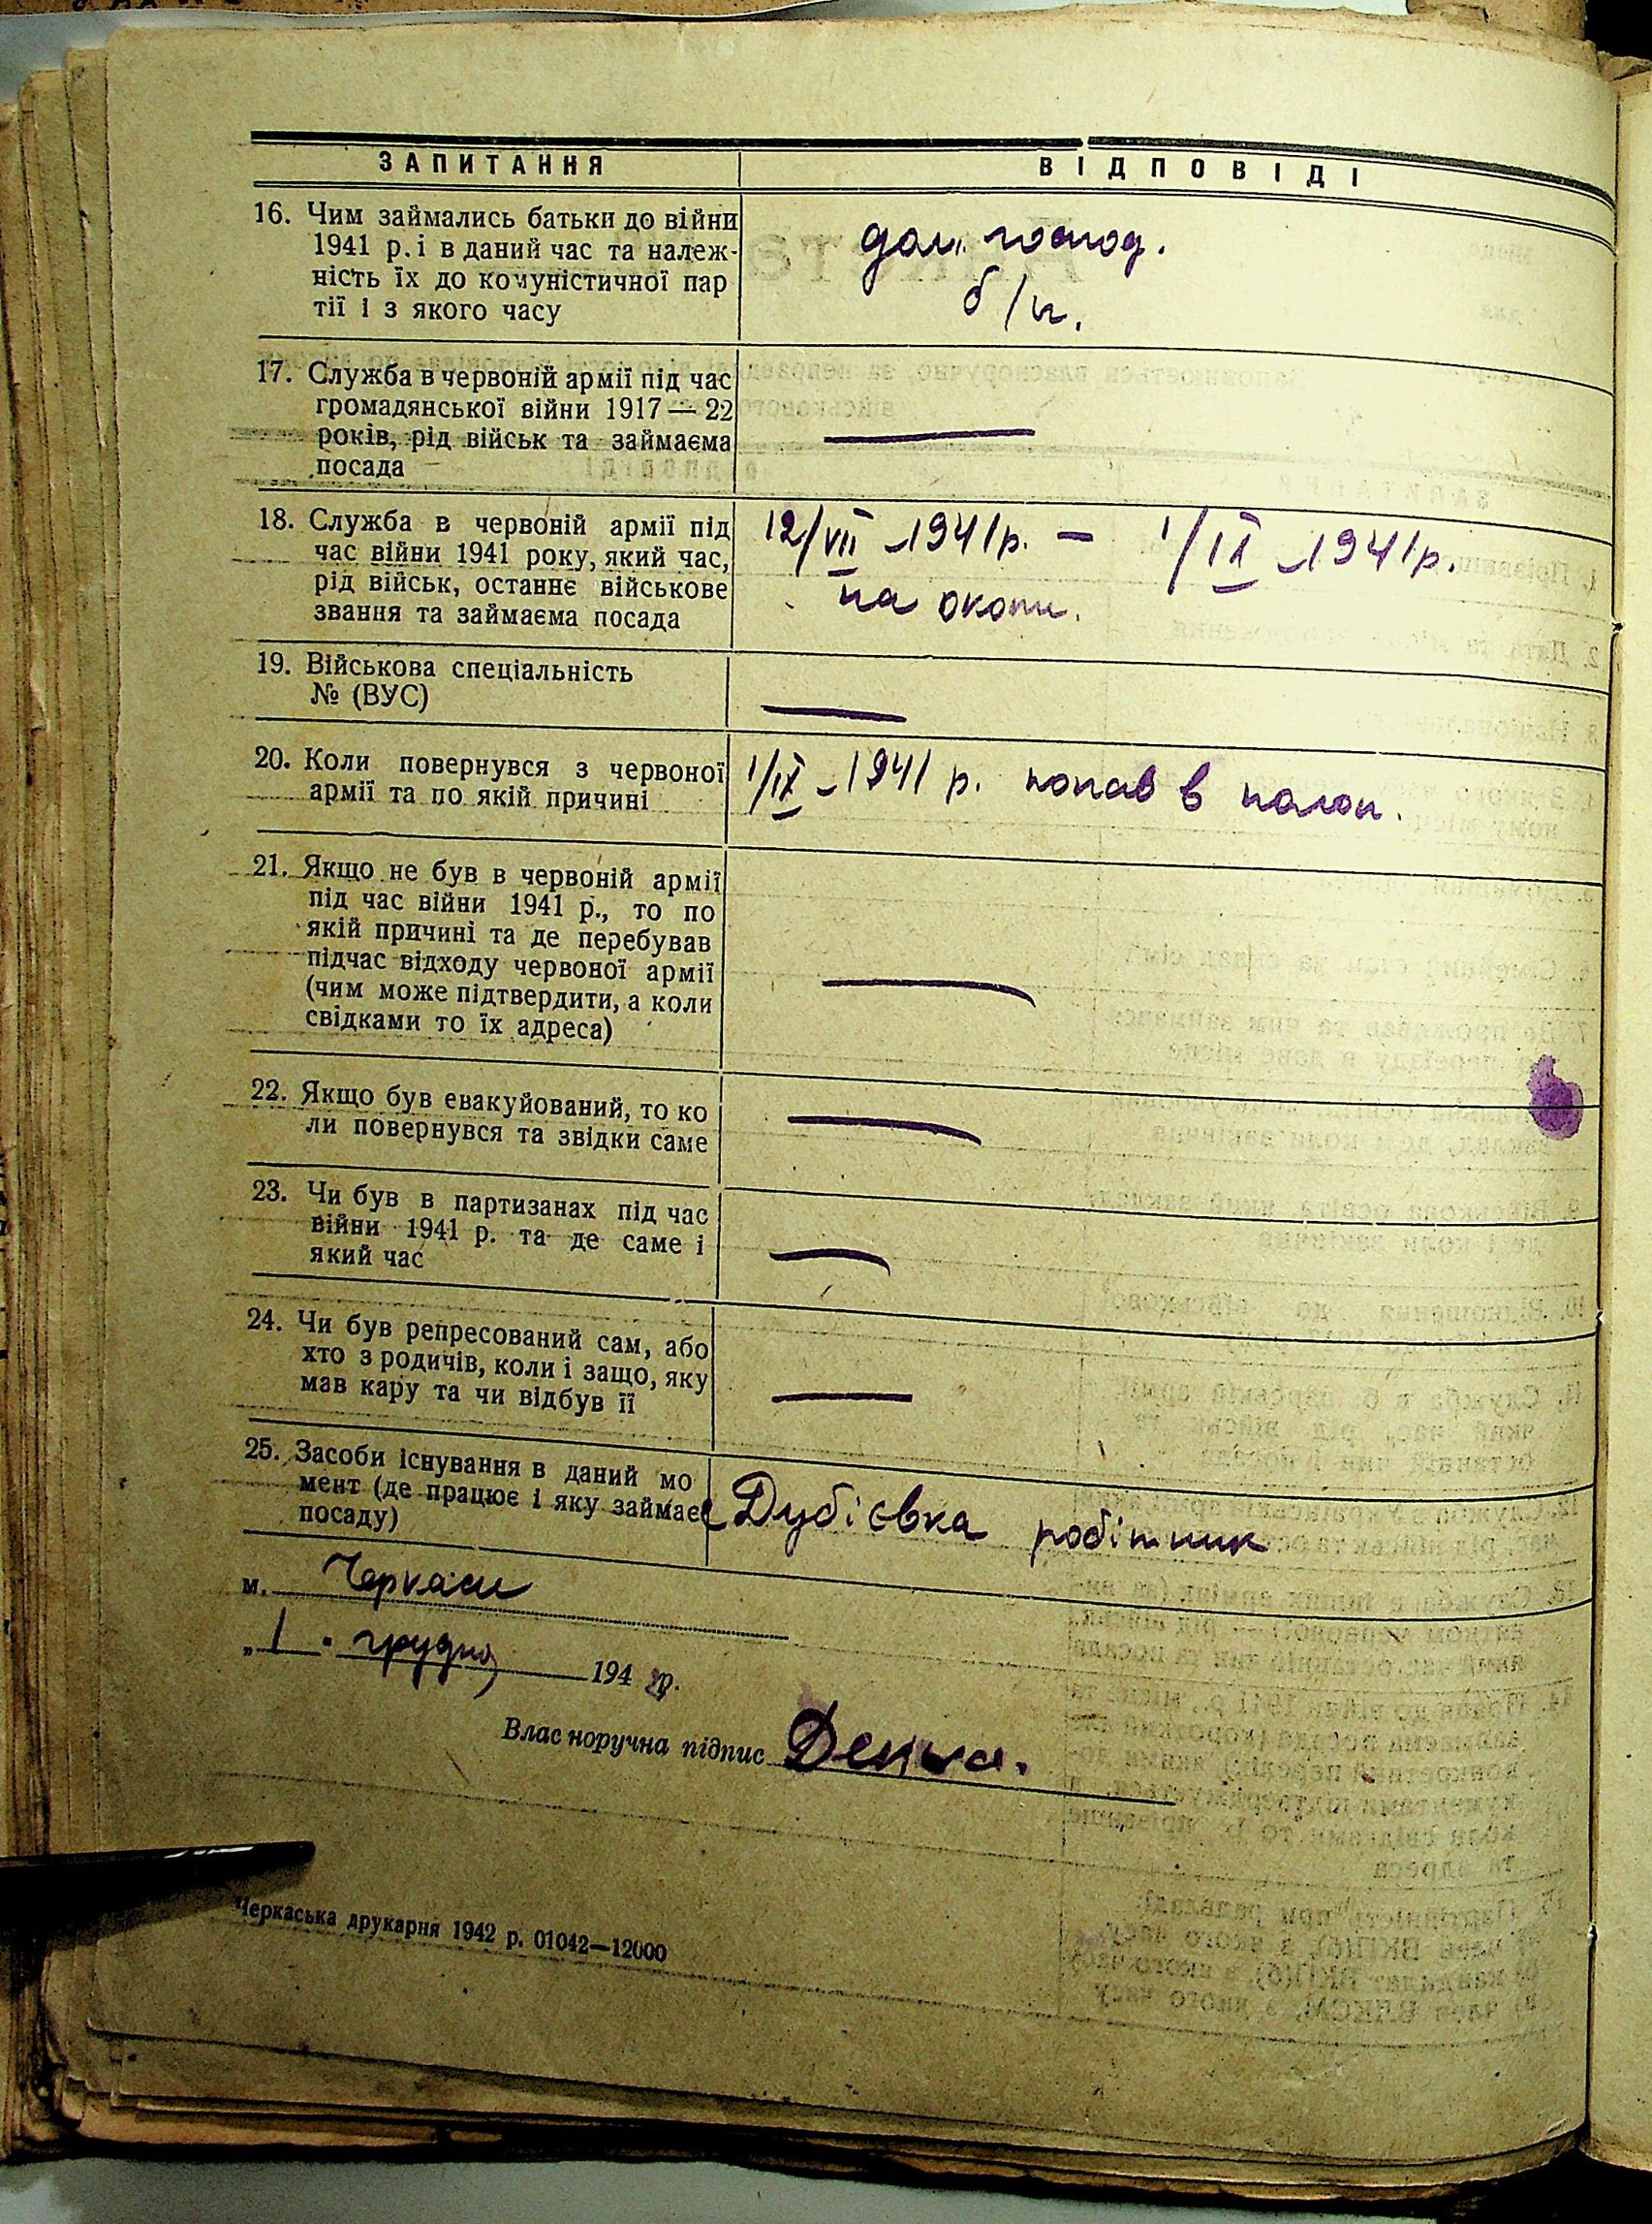 ЗАПИТАННЯ
ВІДПОВІДІ
16. Чим займались батьки до війни
1941 р. і в даний час та належ-
ність їх до комуністичної пар
тії і з якого часу
дом. господ.
б/п.
17. Служба в червоній армії під час
громадянської війни 1917 — 22
років, рід військ та займаєма
посада
—
18. Служба в червоній армії під
час війни 1941 року, який час,
рід військ, останнє військове
звання та займаєма посада
12/VII – 1941 р. – 1/IX – 1941 р.
на окопи.
19. Військова спеціальність
№ (ВУС)
—
20. Коли повернувся з червоної
армії та по якій причині
1/IX – 1941 р. попав в полон.
21. Якщо не був в червоній армії
під час війни 1941 р., то по
якій причині та де перебував
підчас відходу червоної армії
(чим може підтвердити, а коли
свідками то їх адреса)
—
22. Якщо був евакуйований, то ко
ли повернувся та звідки саме
—
23. Чи був в партизанах під час
війни 1941 р. та де саме і
який час
—
24. Чи був репресований сам, або
хто з родичів, коли і защо, яку
мав кару та чи відбув її
—
25. Засоби існування в даний мо
мент (де працює і яку займає
посаду)
Дубієвка робітник
м. Черкаси
„ 1 " грудня 1942 р.
Власноручна підпис
Черкаська друкарня 1942 р. 01042—12000